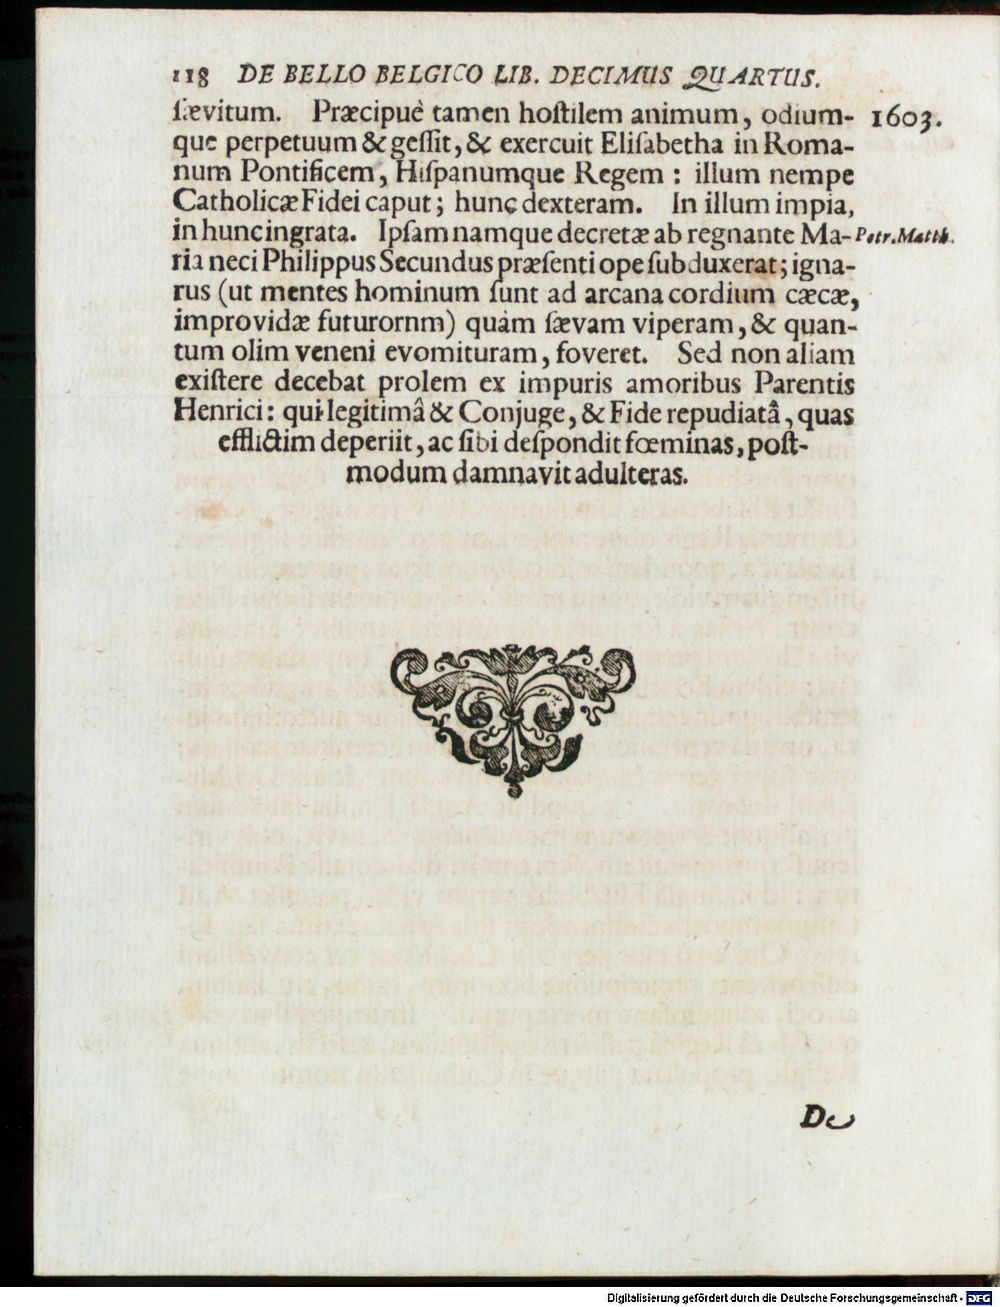 118 DE BELLO BELGICO LIB. DECIMUS QUARTUS.
ſævitum. Præcipuè tamen hoſtilem animum, odium- 1603.
que perpetuum & geſſit, & exercuit Eliſabetha in Roma-
num Pontificem, Hiſpanumque Regem : illum nempe
Catholicæ Fidei caput; hunc dexteram. In illum impia,
in hunc ingrata. Ipſam namque decretæ ab regnante Ma- Petr. Matth.
ria neci Philippus Secundus præſenti ope ſubduxerat; igna-
rus (ut mentes hominum ſunt ad arcana cordium cæcæ,
improvidæ futurornm) quàm ſævam viperam, & quan-
tum olim veneni evomituram, foveret. Sed non aliam
exiſtere decebat prolem ex impuris amoribus Parentis
Henrici: qui legitimâ & Conjuge, & Fide repudiatâ, quas
efflictim deperiit, ac ſibi deſpondit fœminas, poſt-
modum damnavit adulteras.
De
Digitalisierung gefördert durch die Deutsche Forschungsgemeinschaft - DFG